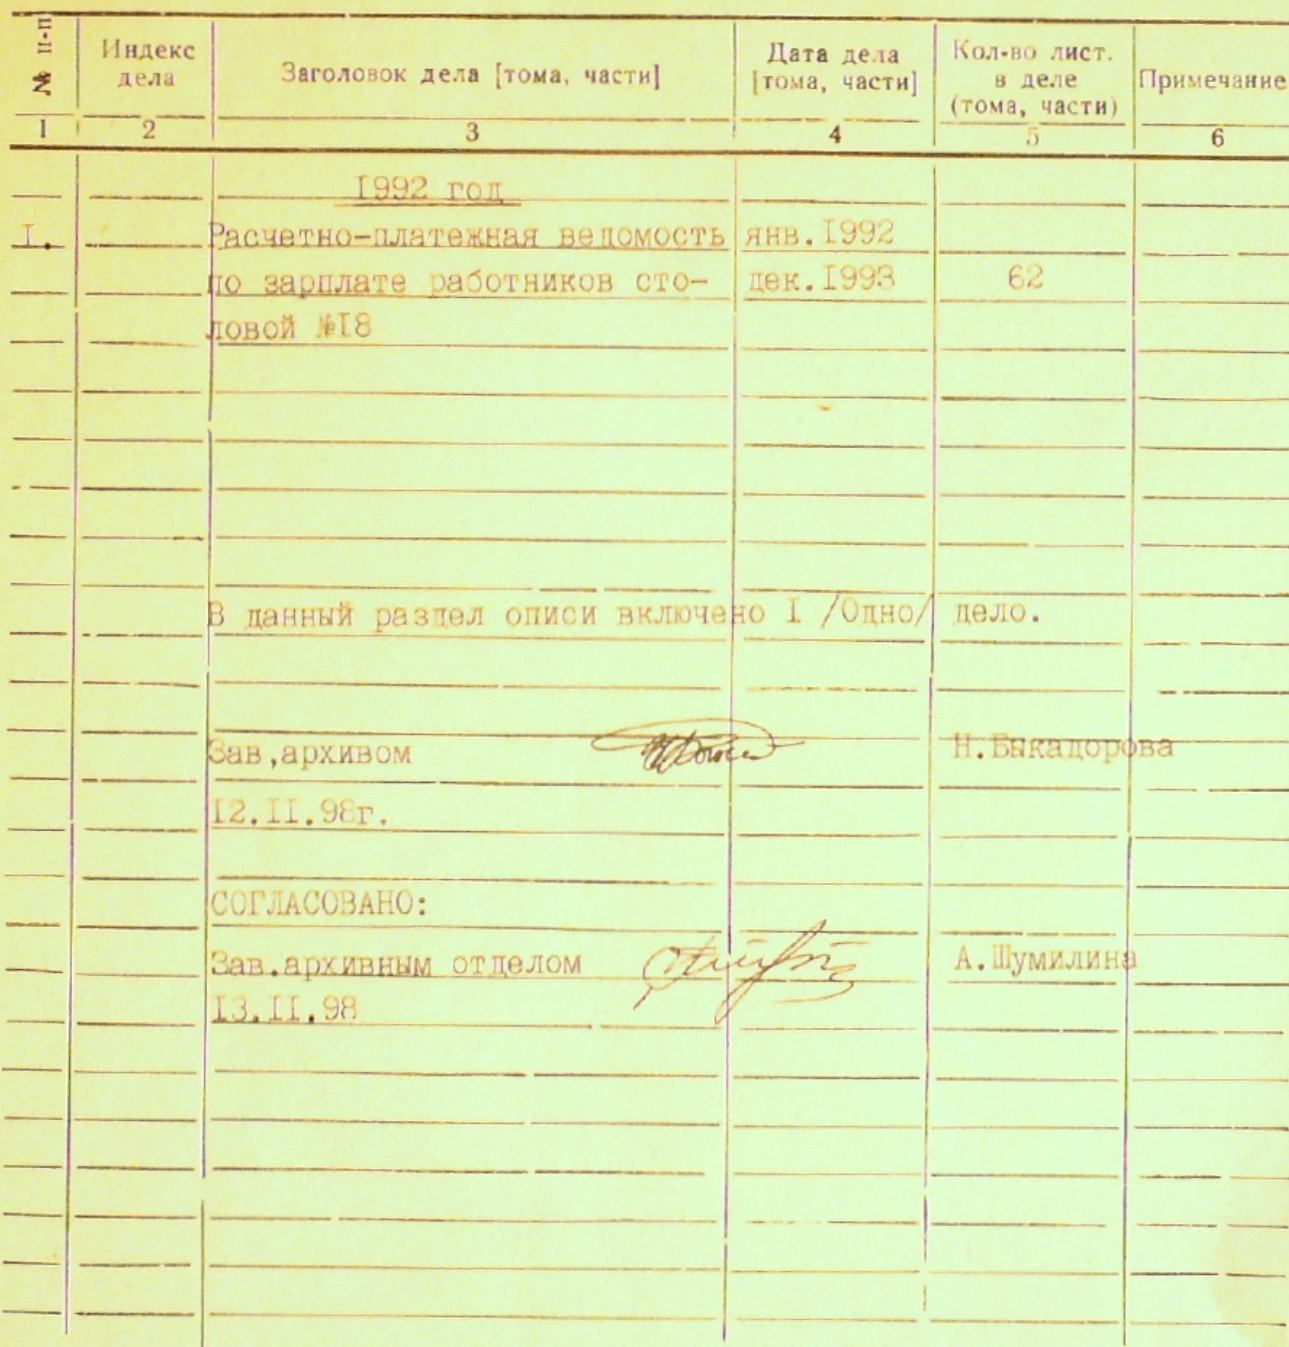 № п-п Индекс дела Заголовок дела [тома, части] Дата дела [тома, части] Кол-во лист. в деле (тома, части) Примечание
1 2 3 4 5 6
1992 год
I. Расчетно-платежная ведомость янв.1992
по зарплате работников сто- дек.1993 62
ловой №18
В данный раздел описи включено I /Одно/ дело.
Зав,архивом Н.Быкадорова
12.II.98г.
СОГЛАСОВАНО:
Зав.архивным отделом А.Шумилина
13.II.98